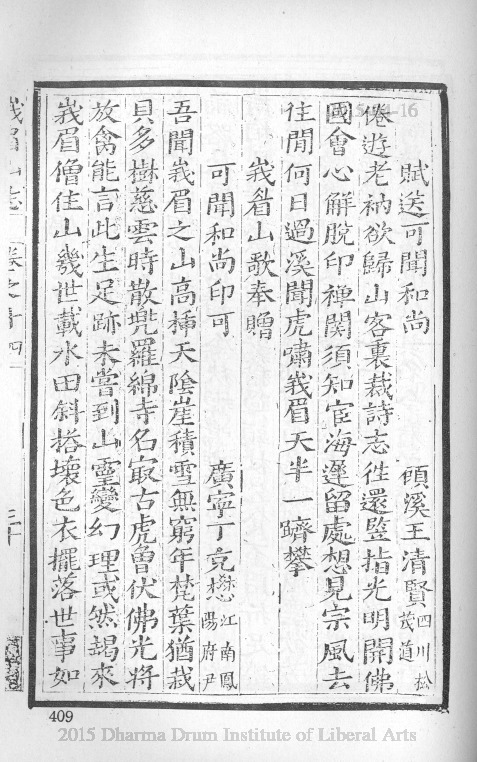 賦送可聞和尚　頎溪王清賢四川松茂道
倦遊老衲欲歸山客裏裁詩志徃還豎指光明開佛
國會心解脫印禅関須知宦海遲留處想見宗風去
往閒何日過溪聞虎嘯峩眉天半一躋攀
峩眉山歌奉贈
可聞和尚印可　廣寧丁克懋江南鳳陽府尹
吾聞峩眉之山高插天陰崖積雪無窮年梵葉猶栽
貝多樹慈雲時散兠羅綿寺名㝡古虎曾伏佛光將
放禽能言此生足跡未嘗到山靈變幻理或然朅來
峩眉僧住山幾世載水田斜搭壊色衣擺落世事如
峩眉山志　卷之十四　三十
409
2015 Dharma Drum Institute of Liberal Arts